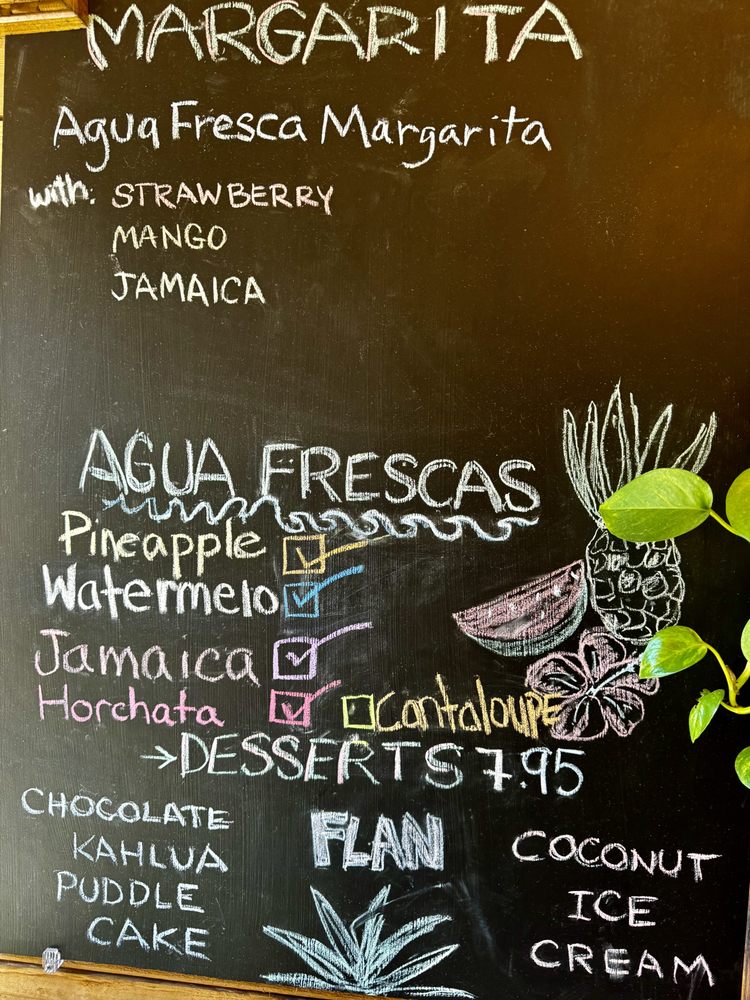 MARGARITA
Agua Fresca Margarita
with: STRAWBERRY
MANGO
JAMAICA
AGUA FRESCAS
Pineapple
Watermelo
Jamaica
Horchata Cantaloupe
→DESSERTS 7.95
CHOCOLATE
KAHLUA
PUDDLE
CAKE
FLAN
COCONUT
ICE
CREAM